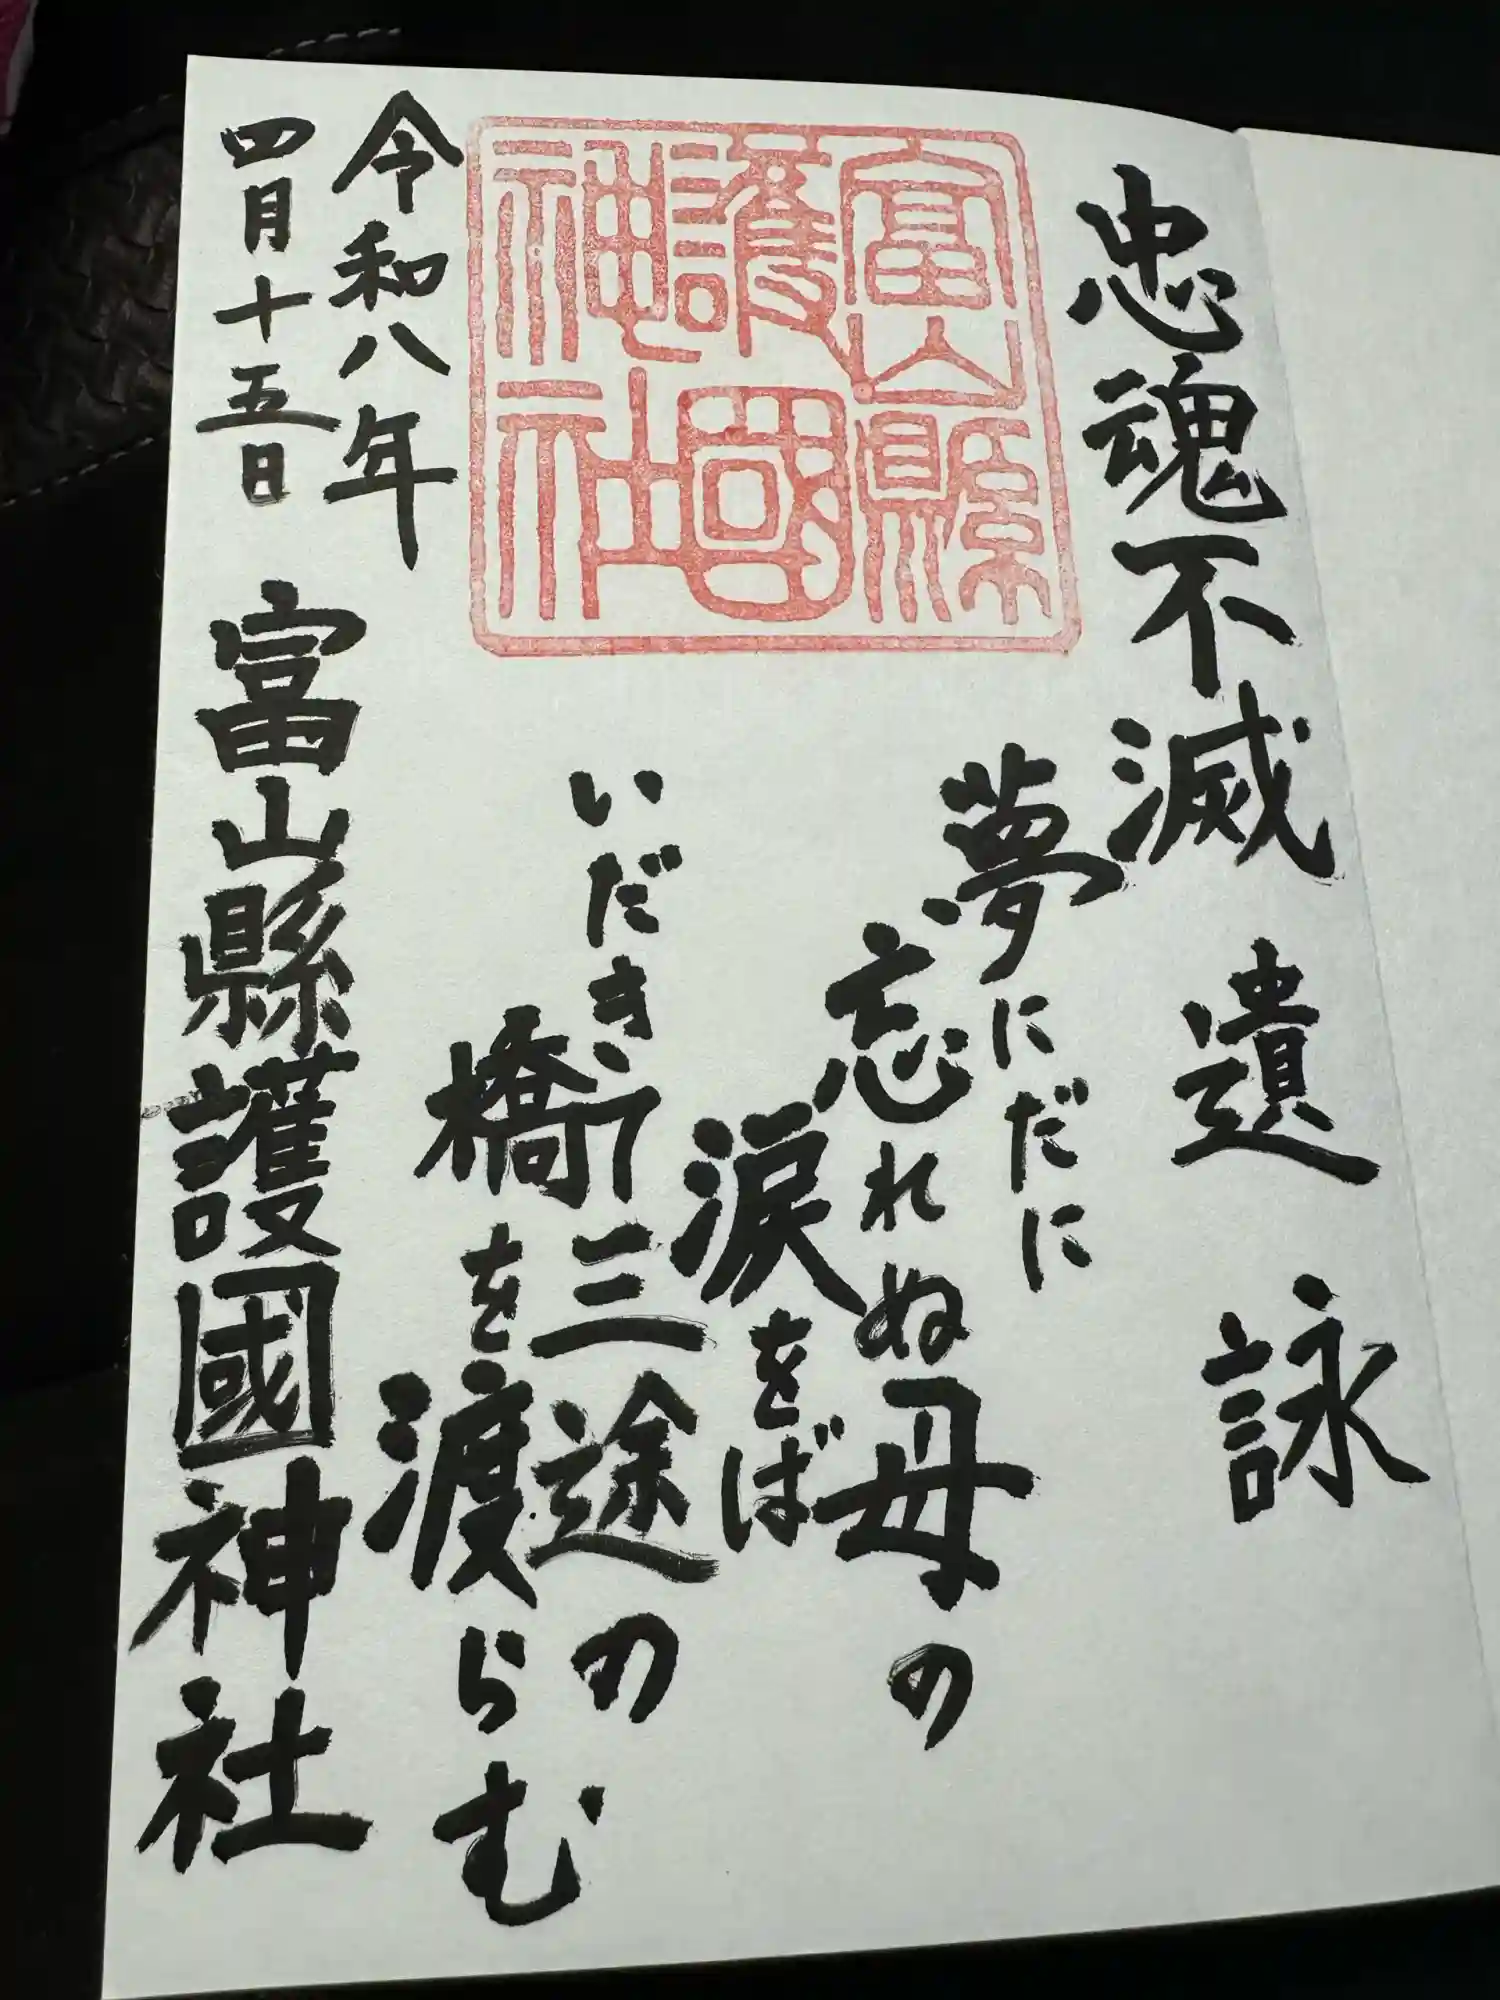 忠魂不滅 遺詠
夢にだに
忘れぬ母の
涙をば
いだきて三途の
橋を渡らむ
富山縣
護國
神社
令和八年
四月十五日 富山縣護國神社